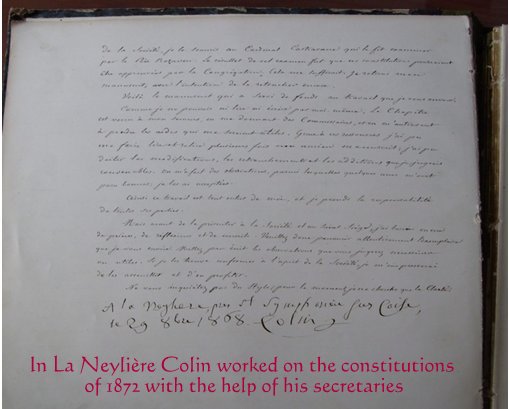 de la Société, je le soumis au Cardinal Castracane qui le fit examiner
par le Père Rozaven. Le résultat de cet examen fut que ces constitutions pouvaient
être approuvées par la Congrégation; cela me suffisait. Je retirai mon
manuscrit, avec l'intention de le retoucher encore.
Voilà le manuscrit qui a servi de fonds au travail que je vous envoie.
Comme je ne pouvais ni lire ni écrire par moi même, le Chapitre
est venu à mon secours en me donnant des Commissaires, et en m'autorisant
à prendre les aides qui me seraient utiles. Grâce à ces secours, j'ai pu
me faire lire et relire plusieurs fois mon ancien manuscrit, j'ai pu
dicter les modifications, les retranchements et les additions que je jugeais
convenables. On m'a fait des observations, parmi lesquelles quelques unes m'ont
paru bonnes, je les ai acceptées.
Ainsi ce travail est tout entier de moi, et je prends la responsabilité
de toutes ses parties.
Mais avant de le présenter à la Société et au Saint Siège, j'ai besoin encore
de prières, de réflexions et de conseils. Veuillez donc parcourir attentivement l'exemplaire
que je vous envoie. Mettez par écrit les observations que vous jugerez nécessaires
ou utiles. Si je les trouve conformes à l'esprit de la Société, je m'empresserai
de les accueillir et d'en profiter.
Ne vous inquiétez pas du style; pour le moment, je ne cherche que la clarté.
A la Neylière, par St Symphorien sur Coise,
le 29 8bre 1868 Colin
In La Neylière Colin worked on the constitutions
of 1872 with the help of his secretaries